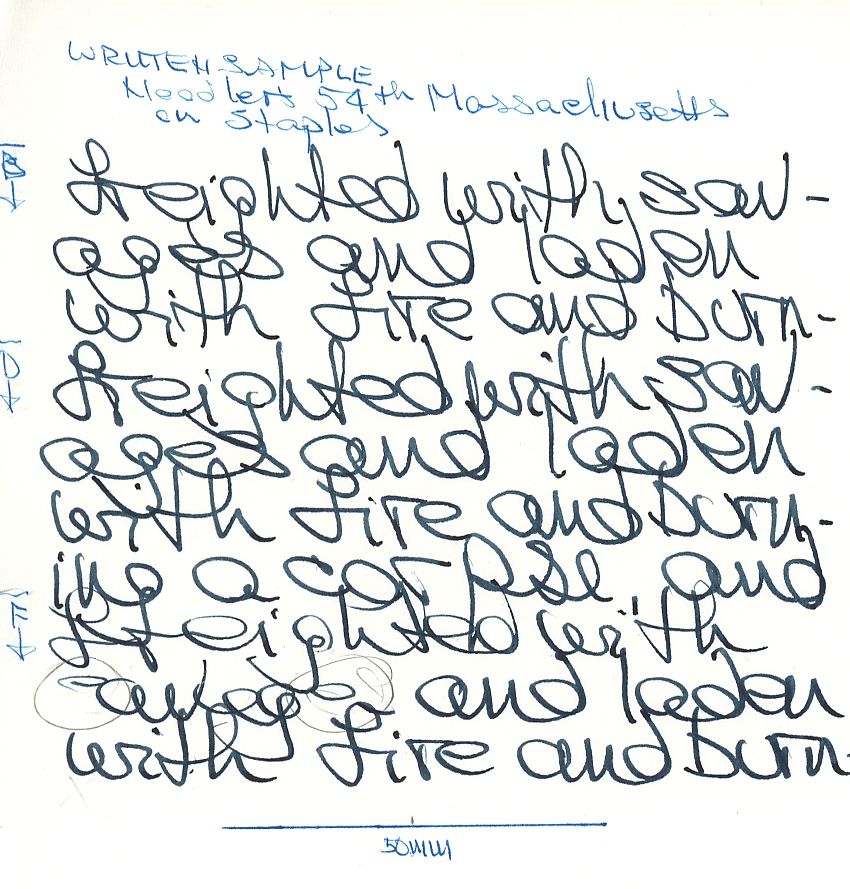 WRITTEN SAMPLE
Noodlers 54th Massachusetts
on Staples
freighted with sav-
ages and laden
with fire and burn-
freighted with sav-
ages and laden
with fire and burn-
ing a corpse, and
freighted with
savages and laden
with fire and burn-
50mm